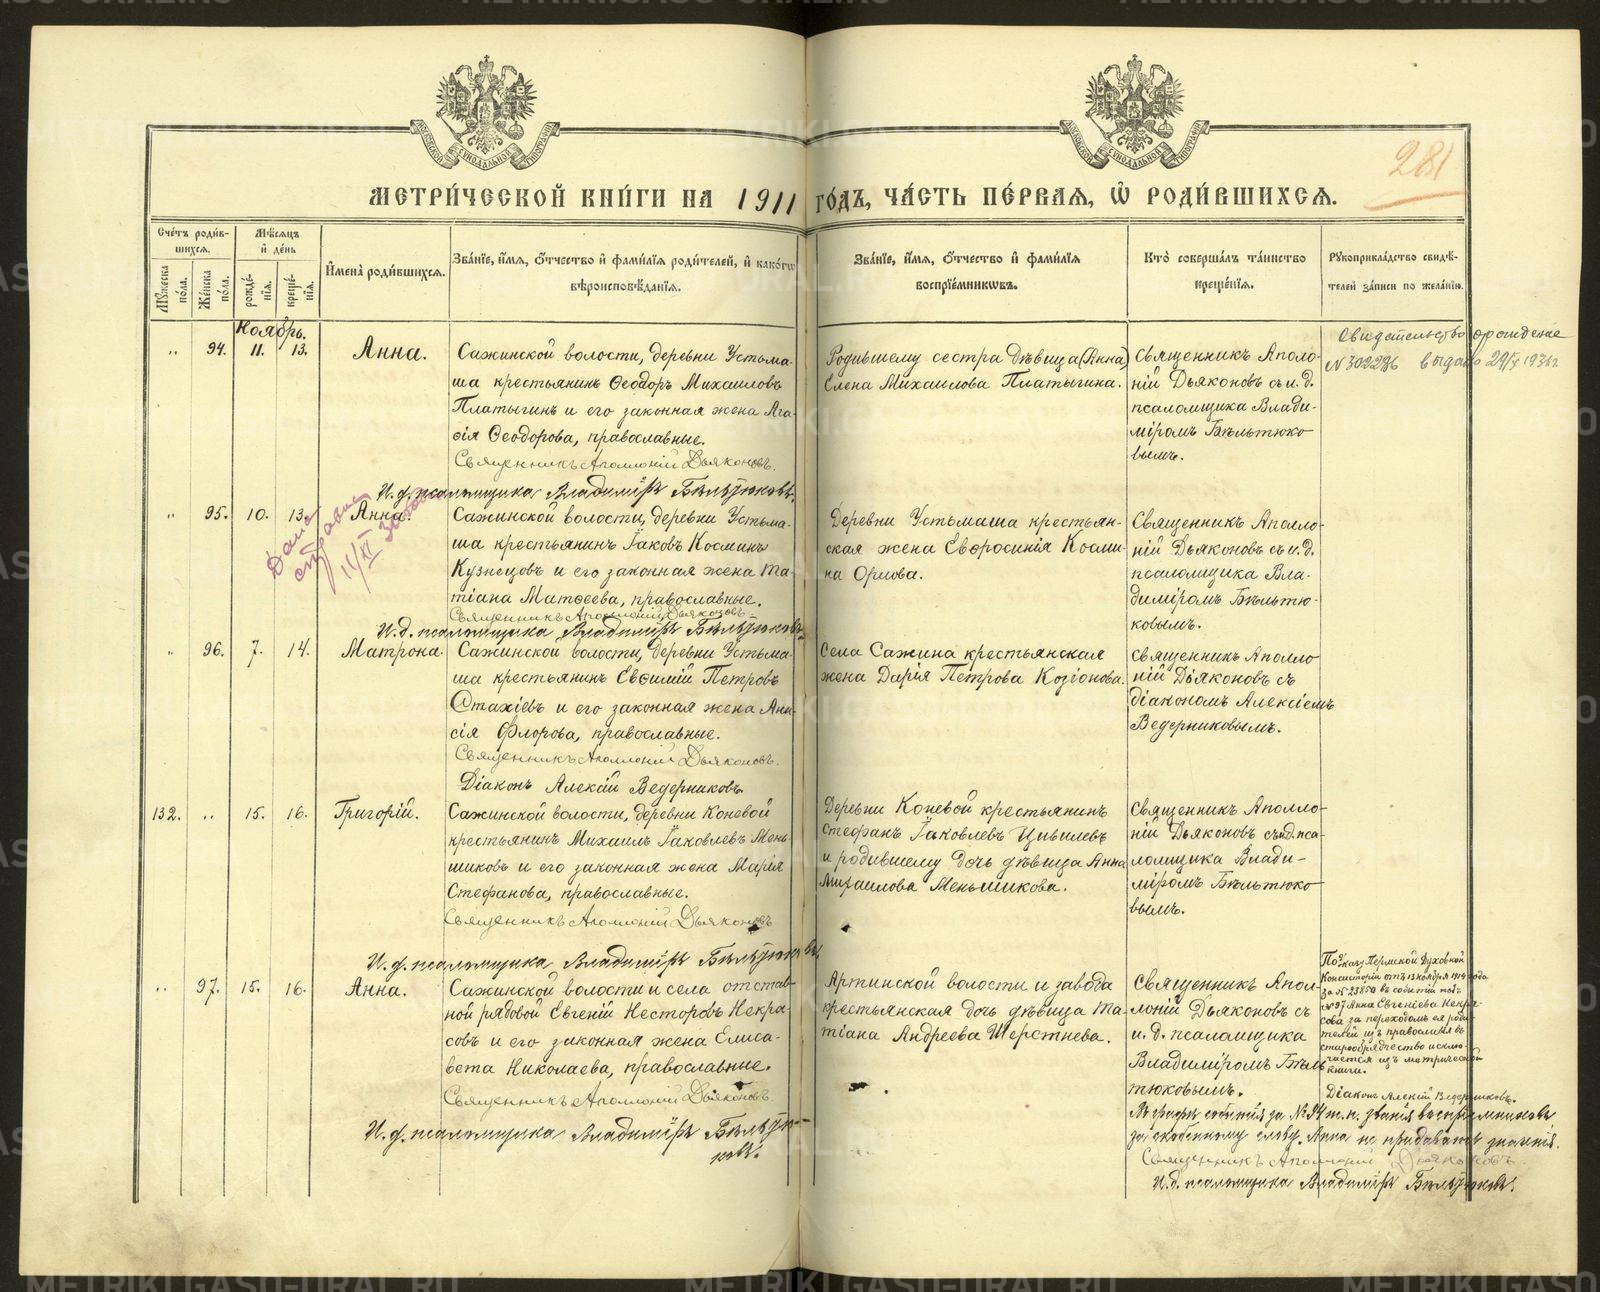 281
МЕТРИ́ЧЕСКОЙ КНИ́ГИ НА 1911 ГО́ДЪ, ЧА́СТЬ ПЕ́РВАЯ, Ѿ РОДИ́ВШИХСЯ.
Счетъ роди́в-
шихся.
Му́жеска по́ла.
Же́нска по́ла.
Мѣ́сяцъ
и҆ де́нь
рожде́-
нїѧ.
креще́-
нїѧ.
И҆мена̀ роди́вшихся.
Зва́нїе, и҆́мя, о҆́тчество и҆ фами́лїѧ роди́телей, и҆ како́гѡ
вѣроисповѣ́данїѧ.
Зва́нїе, и҆́мя, о҆́тчество и҆ фами́лїѧ
воспрїе́мникѡвъ.
Кто̀ соверша́лъ та́инство
креще́нїѧ.
Рꙋкоприкла́дство свидѣ́-
телей за́писи по жела́нїю.
Ноябрь.
94. 11. 13.
Анна.
Сажинской волости, деревни Устьма-
ша крестьянинъ Ѳеодоръ Михаиловъ
Платыгинъ и его законная жена Ага-
ѳія Ѳеодорова, православные.
Священникъ Аполлоній Дьяконовъ.
И. д. псаломщика Владиміръ Бѣльтюковъ.
Родившему сестра дѣвица (Анна)
Елена Михаилова Платыгина.
Священникъ Аполло-
ній Дьяконовъ съ и. д.
псаломщика Влади-
міромъ Бѣльтюко-
вымъ.
Свидетельство о рождение
№ 302236 выдано
95. 10. 13.
Анна.
Дана
справка
11/XI
Сажинской волости, деревни Устьма-
ша крестьянинъ Іаковъ Косминъ
Кузнецовъ и его законная жена Та-
тіана Матѳеева, православные.
Священникъ Аполлоній Дьяконовъ.
И. д. псаломщика Владиміръ Бѣльтюковъ.
Деревни Устьмаша крестьян-
ская жена Евфросинія Косми-
на Орлова.
Священникъ Аполло-
ній Дьяконовъ съ и. д.
псаломщика Вла-
диміромъ Бѣльтю-
ковымъ.
96. 7. 14.
Матрона.
Сажинской волости, деревни Устьма-
ша крестьянинъ Евѳимій Петровъ
Стахіевъ и его законная жена Ани-
сія Флорова, православные.
Священникъ Аполлоній Дьяконовъ.
Діаконъ Алексій Ведерниковъ
Села Сажина крестьянская
жена Дарія Петрова Козіонова.
Священникъ Аполло-
ній Дьяконовъ съ
діакономъ Алексіемъ
Ведерниковымъ.
132. 15. 16.
Григорій.
Сажинской волости, деревни Коневой
крестьянинъ Михаилъ Іаковлевъ Мень-
шиковъ и его законная жена Марія
Стефанова, православные.
Священникъ Аполлоній Дьяконовъ
И. д. псаломщика Владиміръ Бѣльтюковъ.
Деревни Коневой крестьянинъ
Стефанъ Іаковлевъ Цивилевъ
и родившему дочь дѣвица Анна
Михаилова Меньшикова.
Священникъ Аполло-
ній Дьяконовъ съ и. д. пса-
ломщика Влади-
міромъ Бѣльтюко-
вымъ.
97. 15. 16.
Анна.
Сажинской волости и села отстав-
ной рядовой Евгеній Несторовъ Некра-
совъ и его законная жена Елиса-
вета Николаева, православные.
Священникъ Аполлоній Дьяконовъ.
И. д. псаломщика Владиміръ Бѣльтю-
ковъ.
Артинской волости и завода
крестьянская дочь дѣвица Та-
тіана Андреева Шерстнева.
Священникъ Апол-
лоній Дьяконовъ съ
и. д. псаломщика
Владиміромъ Бѣль-
тюковымъ.
По указу Пермской Духовной
Консисторіи отъ 13 ноября 1914 года
за № 23850 въ событіи подъ
№ 97 Анна Евгеніева Некра-
сова за переходомъ ея роди-
телей изъ православія въ
старообрядчество исклю-
чается изъ метрической
книги.
Діаконъ Алексій Ведерниковъ.
Въ графѣ событія за № 94 т. н. званія воспріемниковъ
за скобенному слову Анна не придавать значенія.
Священникъ Аполлоній Дьяконовъ.
И. д. псаломщика Владиміръ Бѣльтюковъ.
METRIKI.GASO-URAL.RU